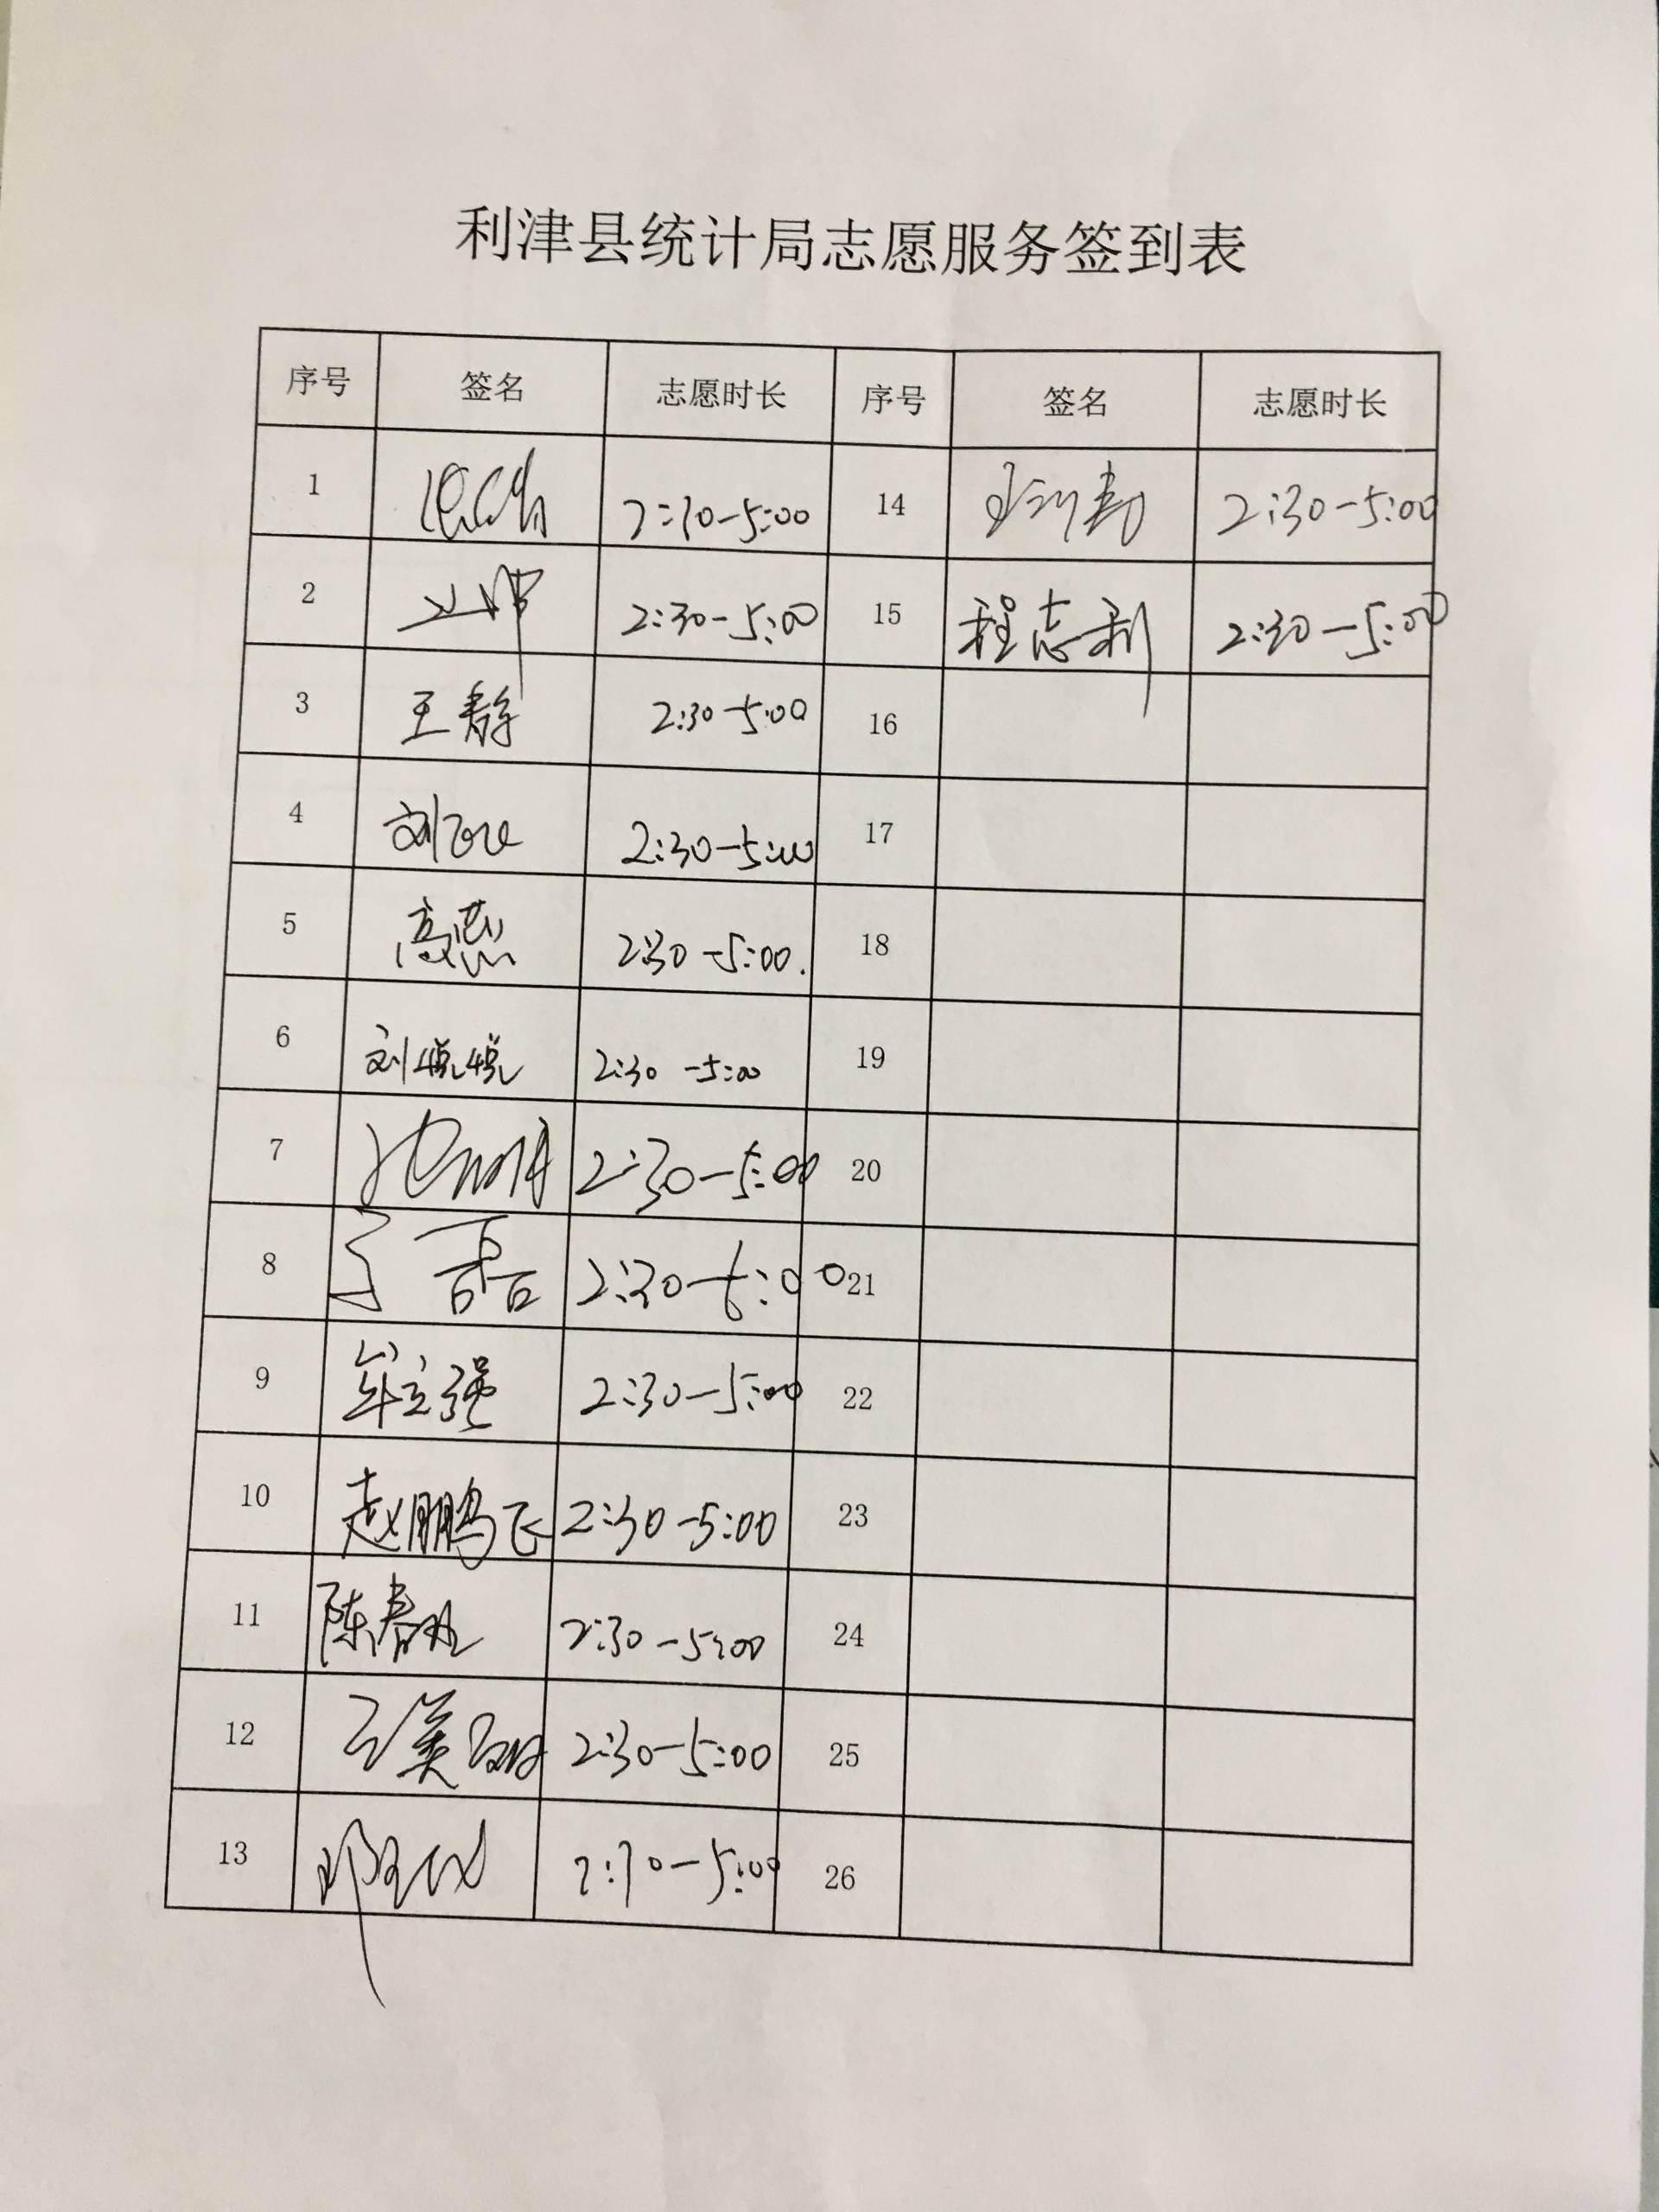 利津县统计局志愿服务签到表
序号 签名 志愿时长 序号 签名 志愿时长
1 2:30-5:00 14 2:30-5:00
2 2:30-5:00 15 程志利 2:30-5:00
3 王静 2:30-5:00 16
4 2:30-5:00 17
5 高燕 2:30-5:00. 18
6 刘悦悦 2:30-5:00 19
7 2:30-5:00 20
8 2:30-5:00 21
9 牟立强 2:30-5:00 22
10 赵鹏飞 2:30-5:00 23
11 陈春 2:30-5:00 24
12 王美丽 2:30-5:00 25
13 2:30-5:00 26